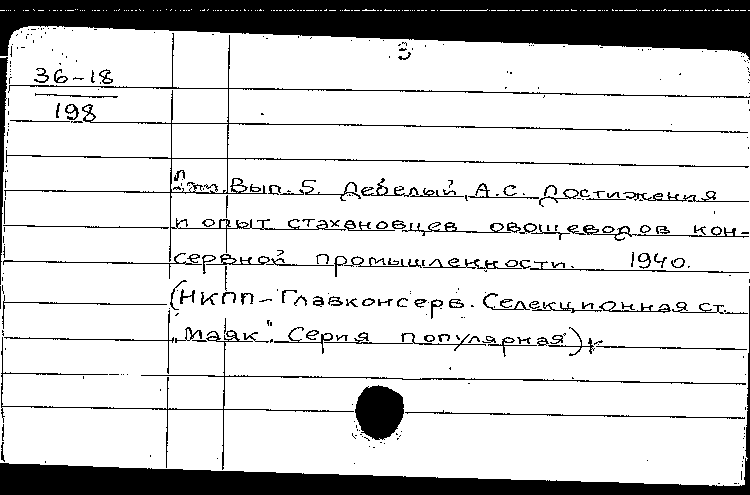 3
36-18
198
Вып. 5. Дебелый, А.С. Достижения
и опыт стахановцев овощеводов кон-
сервной промышленности. 1940.
(НКПП-Главконсерв. Селекционная ст.
"Маяк". Серия популярная)